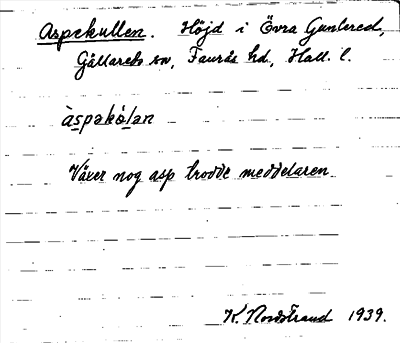 Aspekullen. Höjd i Övra Gunnered,
Gällareds sn, Faurås hd, Hall. l.
àspəkúlan
Växer nog asp trodde meddelaren
K. Nordstrand 1939.